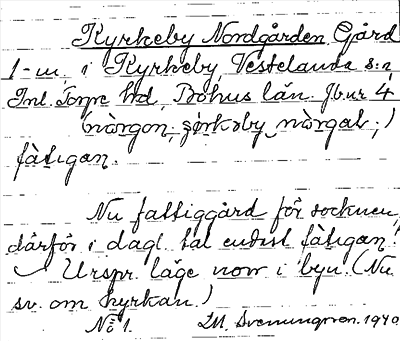 Kyrkeby Nordgården, Gård
1-m, i Kyrkeby, Västerlanda s:n,
Inl. Torpe hd, Bohus län. Jb. nr 4,
(nòrgọn, çörkəby nòrgaḷ,)
fàtigan.
Nu fattiggård för socknen,
därför i dagl. tal endast fàtigan.
Urspr. läge norr i byn. (Nu
sv. om kyrkan.)
No 1. M. Svenungsson. 1940